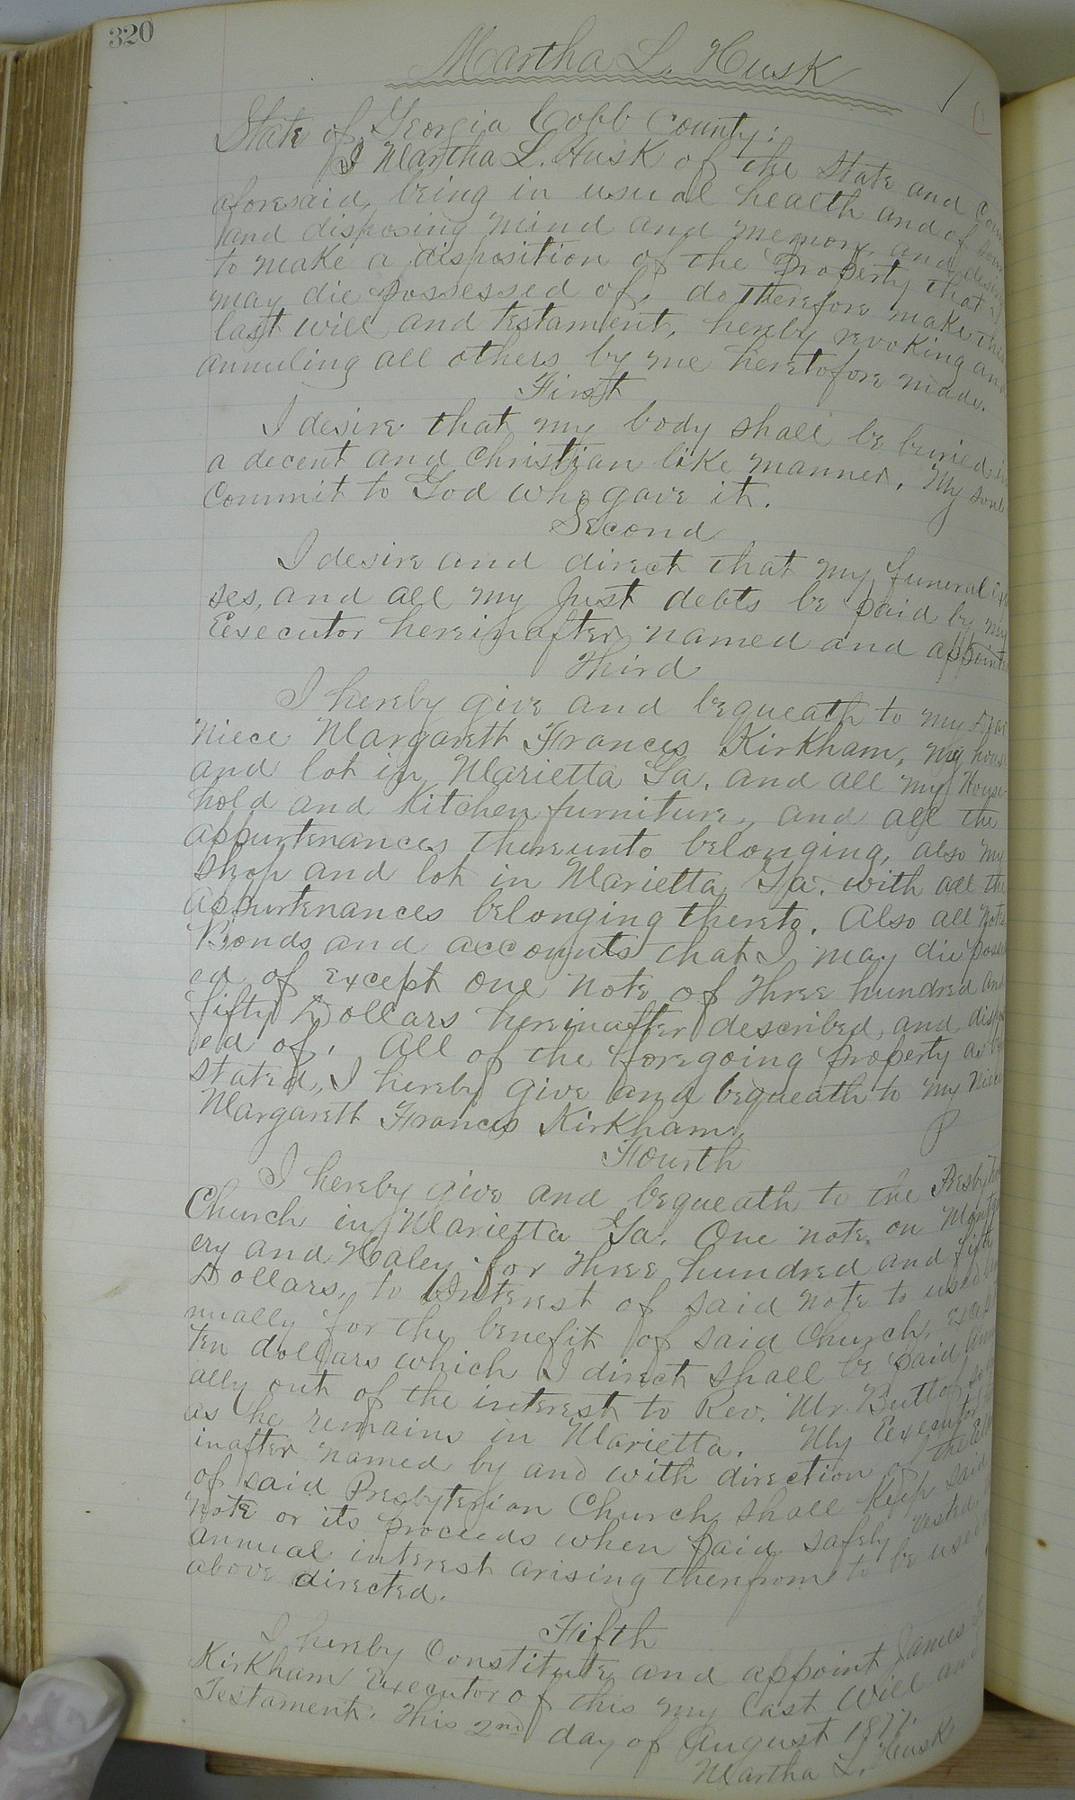 320
Martha L. Husk
State of Georgia Cobb County:
I Martha L. Husk of the State and Coun
aforesaid, being in usual health and of soun
and disposing mind and memory, and desir
to make a disposition of the Property that I
may die possessed of, do therefore make this
last will and testament, hereby revoking and
annuling all others by me heretofore made.
First
I desire that my body shall be buried in
a decent and Christian like manner. My soul
Commit to God who gave it.
Second
I desire and direct that my funeral Exp
ses, and all my just debts be paid by my
Eexecutor hereinafter named and appointe
Third
I hereby give and bequeath to my Dear
Niece Margarett Frances Kirkham, my house
and lot in Marietta Ga. and all my House-
hold and Kitchen furniture, and all the
appurtenances thereunto belonging, also my
Shop and lot in Marietta Ga. with all the
appurtenances belonging thereto. Also all Notes
Bonds and accounts that I may die posess
ed of except One Note of three hundred and
fifty Dollars hereinafter described and dispo
ed of. All of the foregoing property as by
stated, I hereby give and bequeath to my Niece
Margarett Frances Kirkham.
Fourth
I hereby give and bequeath to the Presbyter
Church in Marietta Ga. One note on Montgom
ery and Haley for three hundred and fifty
Dollars, to Interest of said note to used an
nually for the benefit of said Church, except
ten dollars which I direct shall be paid annu
ally out of the interest to Rev. Mr. Buttolf so
as he remains in Marietta. My Eexecutor
inafter named by and with direction of the
of said Presbyterian Church shall keep said
Note or its proceeds when paid safely vested
annual interest arising therefrom to be used
above directed.
Fifth
I hereby Constitute and appoint James
Kirkham Executor of this my last Will and
Testament. This 2nd day of August 1877.
Martha L. Husk